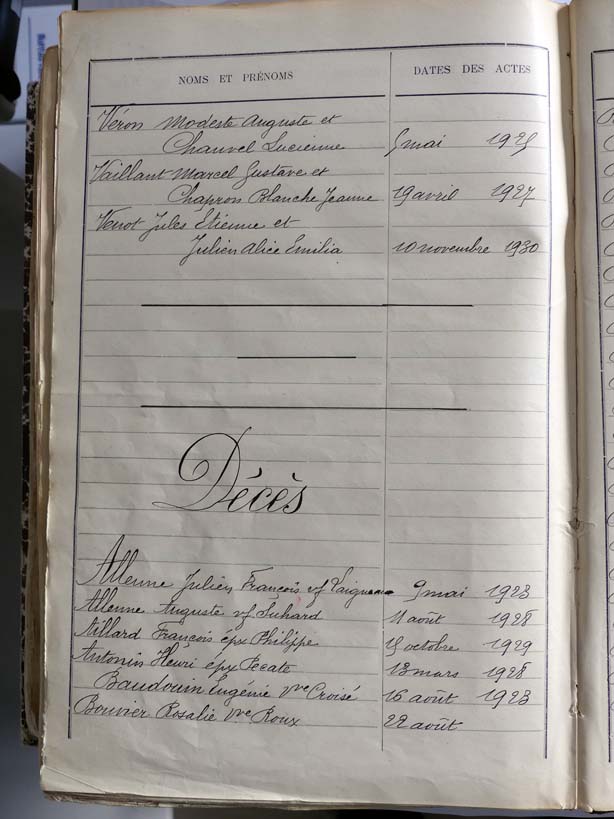 NOMS ET PRÉNOMS DATES DES ACTES
Véron Modeste Auguste et
Chauvel Lucienne 5 mai 1925
Vaillant Marcel Gustave et
Chapron Blanche Jeanne 19 avril 1927
Venot Jules Étienne et
Julien Alice Emilia 10 novembre 1930
Décès
Allenne Julien François vf 9 mai 1923
Allenne Auguste vf Suhard 11 août 1928
Aillard François épx Philippe 15 octobre 1929
Antonin Henri épx Pecate 13 mars 1928
Baudouin Eugénie Vve Croisé 16 août 1923
Bouvier Rosalie Vve Roux 22 août